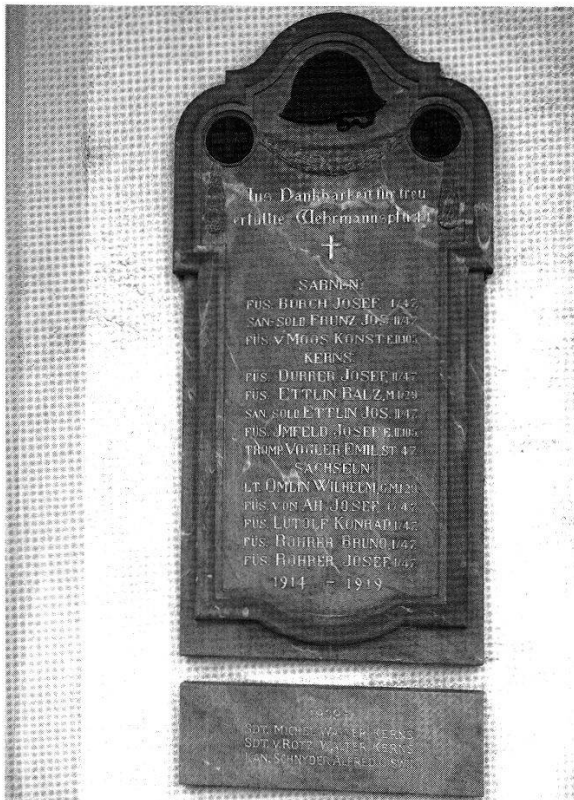 Aus Dankbarkeit für treu
erfüllte Wehrmannspflicht
SARNEN:
FÜS. BURCH JOSEF I/47
SAN.SOLD. FRUNZ JOS. II/47
FÜS. V. MOOS KONST.
KERNS:
FÜS. DURRER JOSEF, II/47
FÜS. ETTLIN BALZ,
SAN. SOLD. ETTLIN JOS. II/47
FÜS. JMFELD JOSEF
TROMP. VOGLER EMIL, ST. 47
SACHSELN:
LT. OMLIN WILHELM,
FÜS. VON AH JOSEF I/47
FÜS. LUTOLF KONRAD I/47
FÜS. ROHRER BRUNO, I/47
FÜS. ROHRER JOSEF I/47
1914 - 1919
SDT. MICHEL KERNS
SDT. V. ROTZ KERNS
KAN. SCHNYDER ALFRED